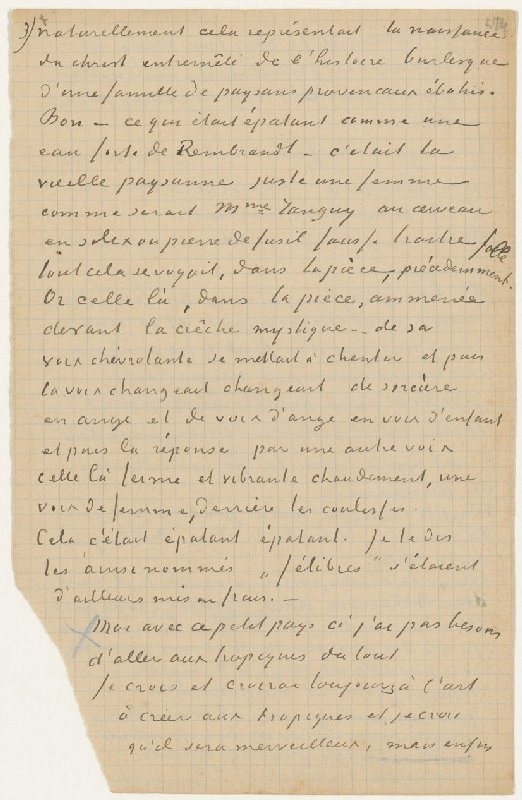 3) naturellement cela représentait la naissance
du christ entremêlé de l'histoire burlesque
d'une famille de paysans provencaux ébahis.
Bon – ce qui était épatant comme une
eau forte de Rembrandt – c'etait la
vieille paysanne juste une femme
comme serait Mme Tanguy au cerveau
en silex ou pierre de fusil fausse traitre folle
tout cela se voyait, dans la pièce, précédemment.
Or celle là, dans la pièce, ammenée
devant la crêche mystique – de sa
voix chevrotante se mettait à chanter et puis
la voix changeait changeait de sorcière
en ange et de voix d'ange en voix d'enfant
et puis la réponse par une autre voix
celle là ferme et vibrante chaudement, une
voix de femme, derrière les coulisses.
Cela c'était épatant épatant. Je te dis
les ainsi nommés „félibres" s'étaient
d'ailleurs mis en frais. –
Moi avec ce petit pays ci j'ai pas besoin
d'aller aux tropiques du tout
Je crois et croirai toujours à l'art
à créer aux tropiques et je crois
qu'il sera merveilleux, mais enfin